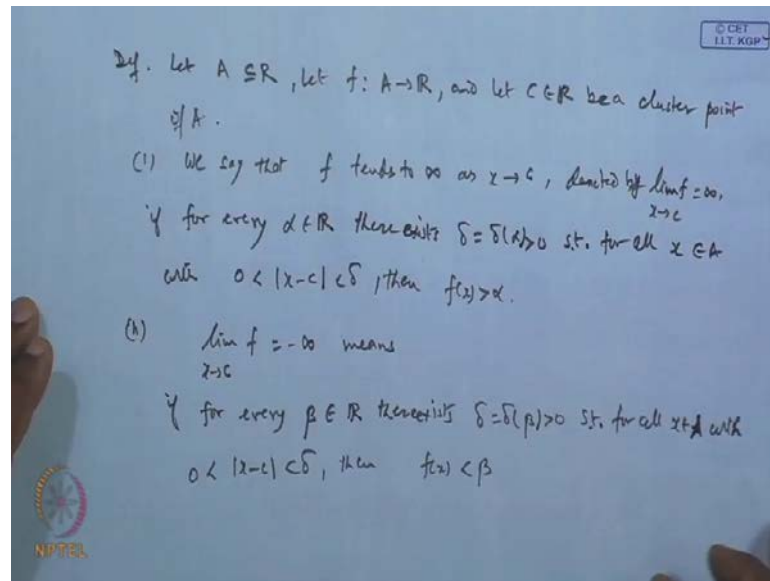 © CET
I.I.T. KGP
Def. Let A ⊆ R, Let f: A→R, and let C ∈ R be a cluster point
of A.
(1) We say that f tends to ∞ as x→c, denoted by lim f = ∞,
x→c
if for every α ∈ R there exists δ = δ(α)>0 s.t. for all x ∈ A
with 0 < |x-c| < δ, then f(x) > α.
lim f = -∞ means
x→c
if for every β ∈ R there exists δ = δ(β)>0 s.t. for all x ∈ A with
0 < |x-c| < δ, then f(x) < β
NPTEL